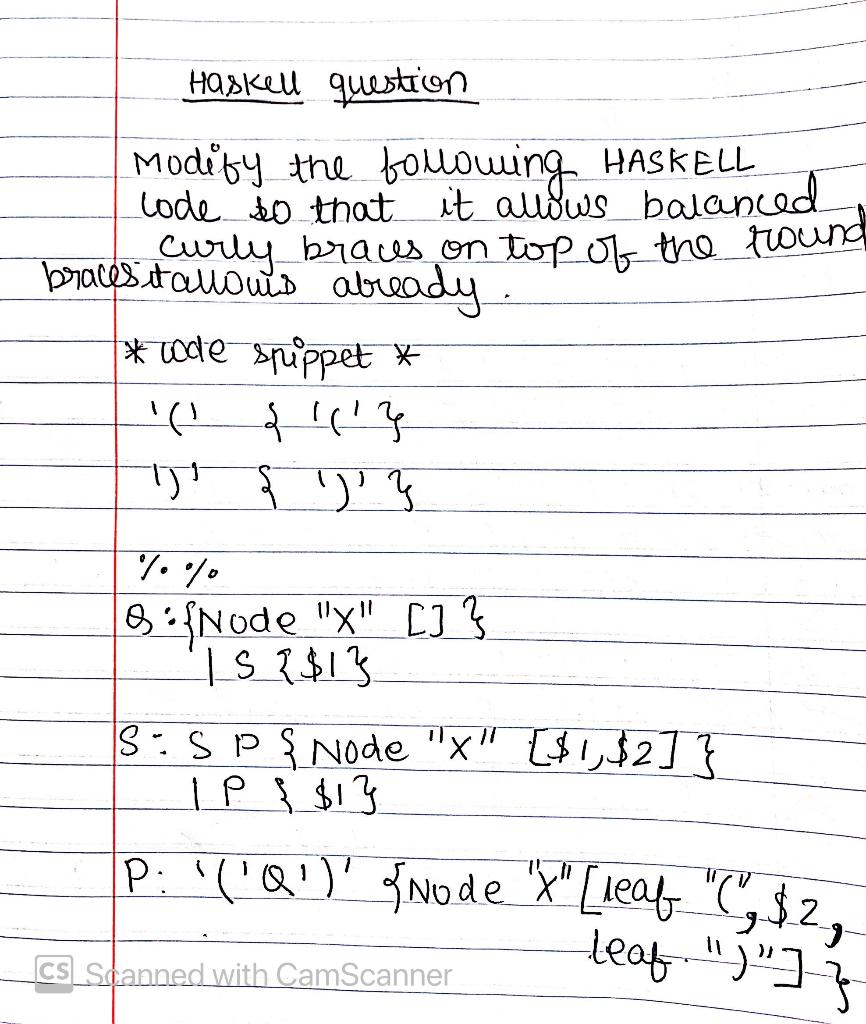 Haskell question
Modify the following HASKELL
code so that it allows balanced
curly braces on top of the round
braces it allows already.
* code snippet *
'(' { '(' }
')' { ')' }
%%
Q:{Node "X" [] }
| S {$1}
S: S P { Node "X" [$1,$2] }
| P { $1}
P: '('Q')' {Node "X" [leaf "(", $2,
leaf ")"] }
CS Scanned with CamScanner